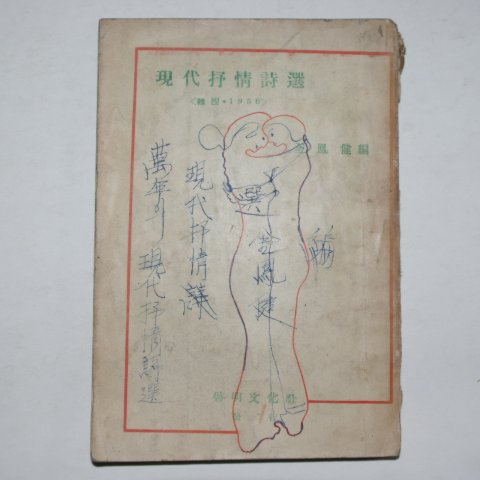 現代抒情詩選
<韓國·1956>
金鳳健編
萬年의 現代抒情詩選
現代抒情
選
金鳳健
編
啓明文化社